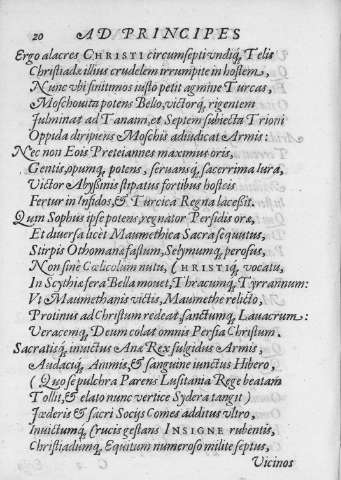 20 AD PRINCIPES
Ergo alacres CHRISTI circumsepti vndiq́, Telis
Christiadæ illius crudelem irrumpite in hostem,
Nunc vbi finitimos iusto petit agmine Turcas,
Moschouita potens Bello, victorq́, rigentem
Fulminat ad Tanaim, et Septem subiecta Trioni
Oppida diripiens Moschis adiudicat Armis:
Nec non Eois Preteiannes maximus oris,
Gentis, opumq́, potens, seruansq́, sacerrima iura,
Victor Abyssinis stipatus fortibus hosteis
Fertur in Infidos, & Turcica Regna lacessit.
Quin Sophus ipse potens, regnator Persidis oræ,
Et diuersa licet Maumethica Sacra sequutus,
Stirpis Othomanæ fastum, Selymumq́, perosus,
Non sine Cœlicolum nutu, CHRISTIq́, vocatu,
In Scythiæ fera Bella mouet, Thracumq́, Tyrrannum:
Vt Maumethanis victis, Maumethe relicto,
Protinus ad Christum redeat, sanctumq́, Lauacrum:
Veracemq́, Deum colat omnis Persia Christum.
Sacratisq́, inuictus Anæ Rex fulgidus Armis,
Audaciq́, Animis, & sanguine iunctus Hibero,
( Quo se pulchra Parens Lusitania Rege beatam
Tollit, & elato nunc vertice Sydera tangit )
Fœderis & sacri Socys Comes additus vltro,
Inuictumq́, Crucis gestans INSIGNE rubentis,
Christiadumq́, Equitum numeroso milite septus,
Vicinos